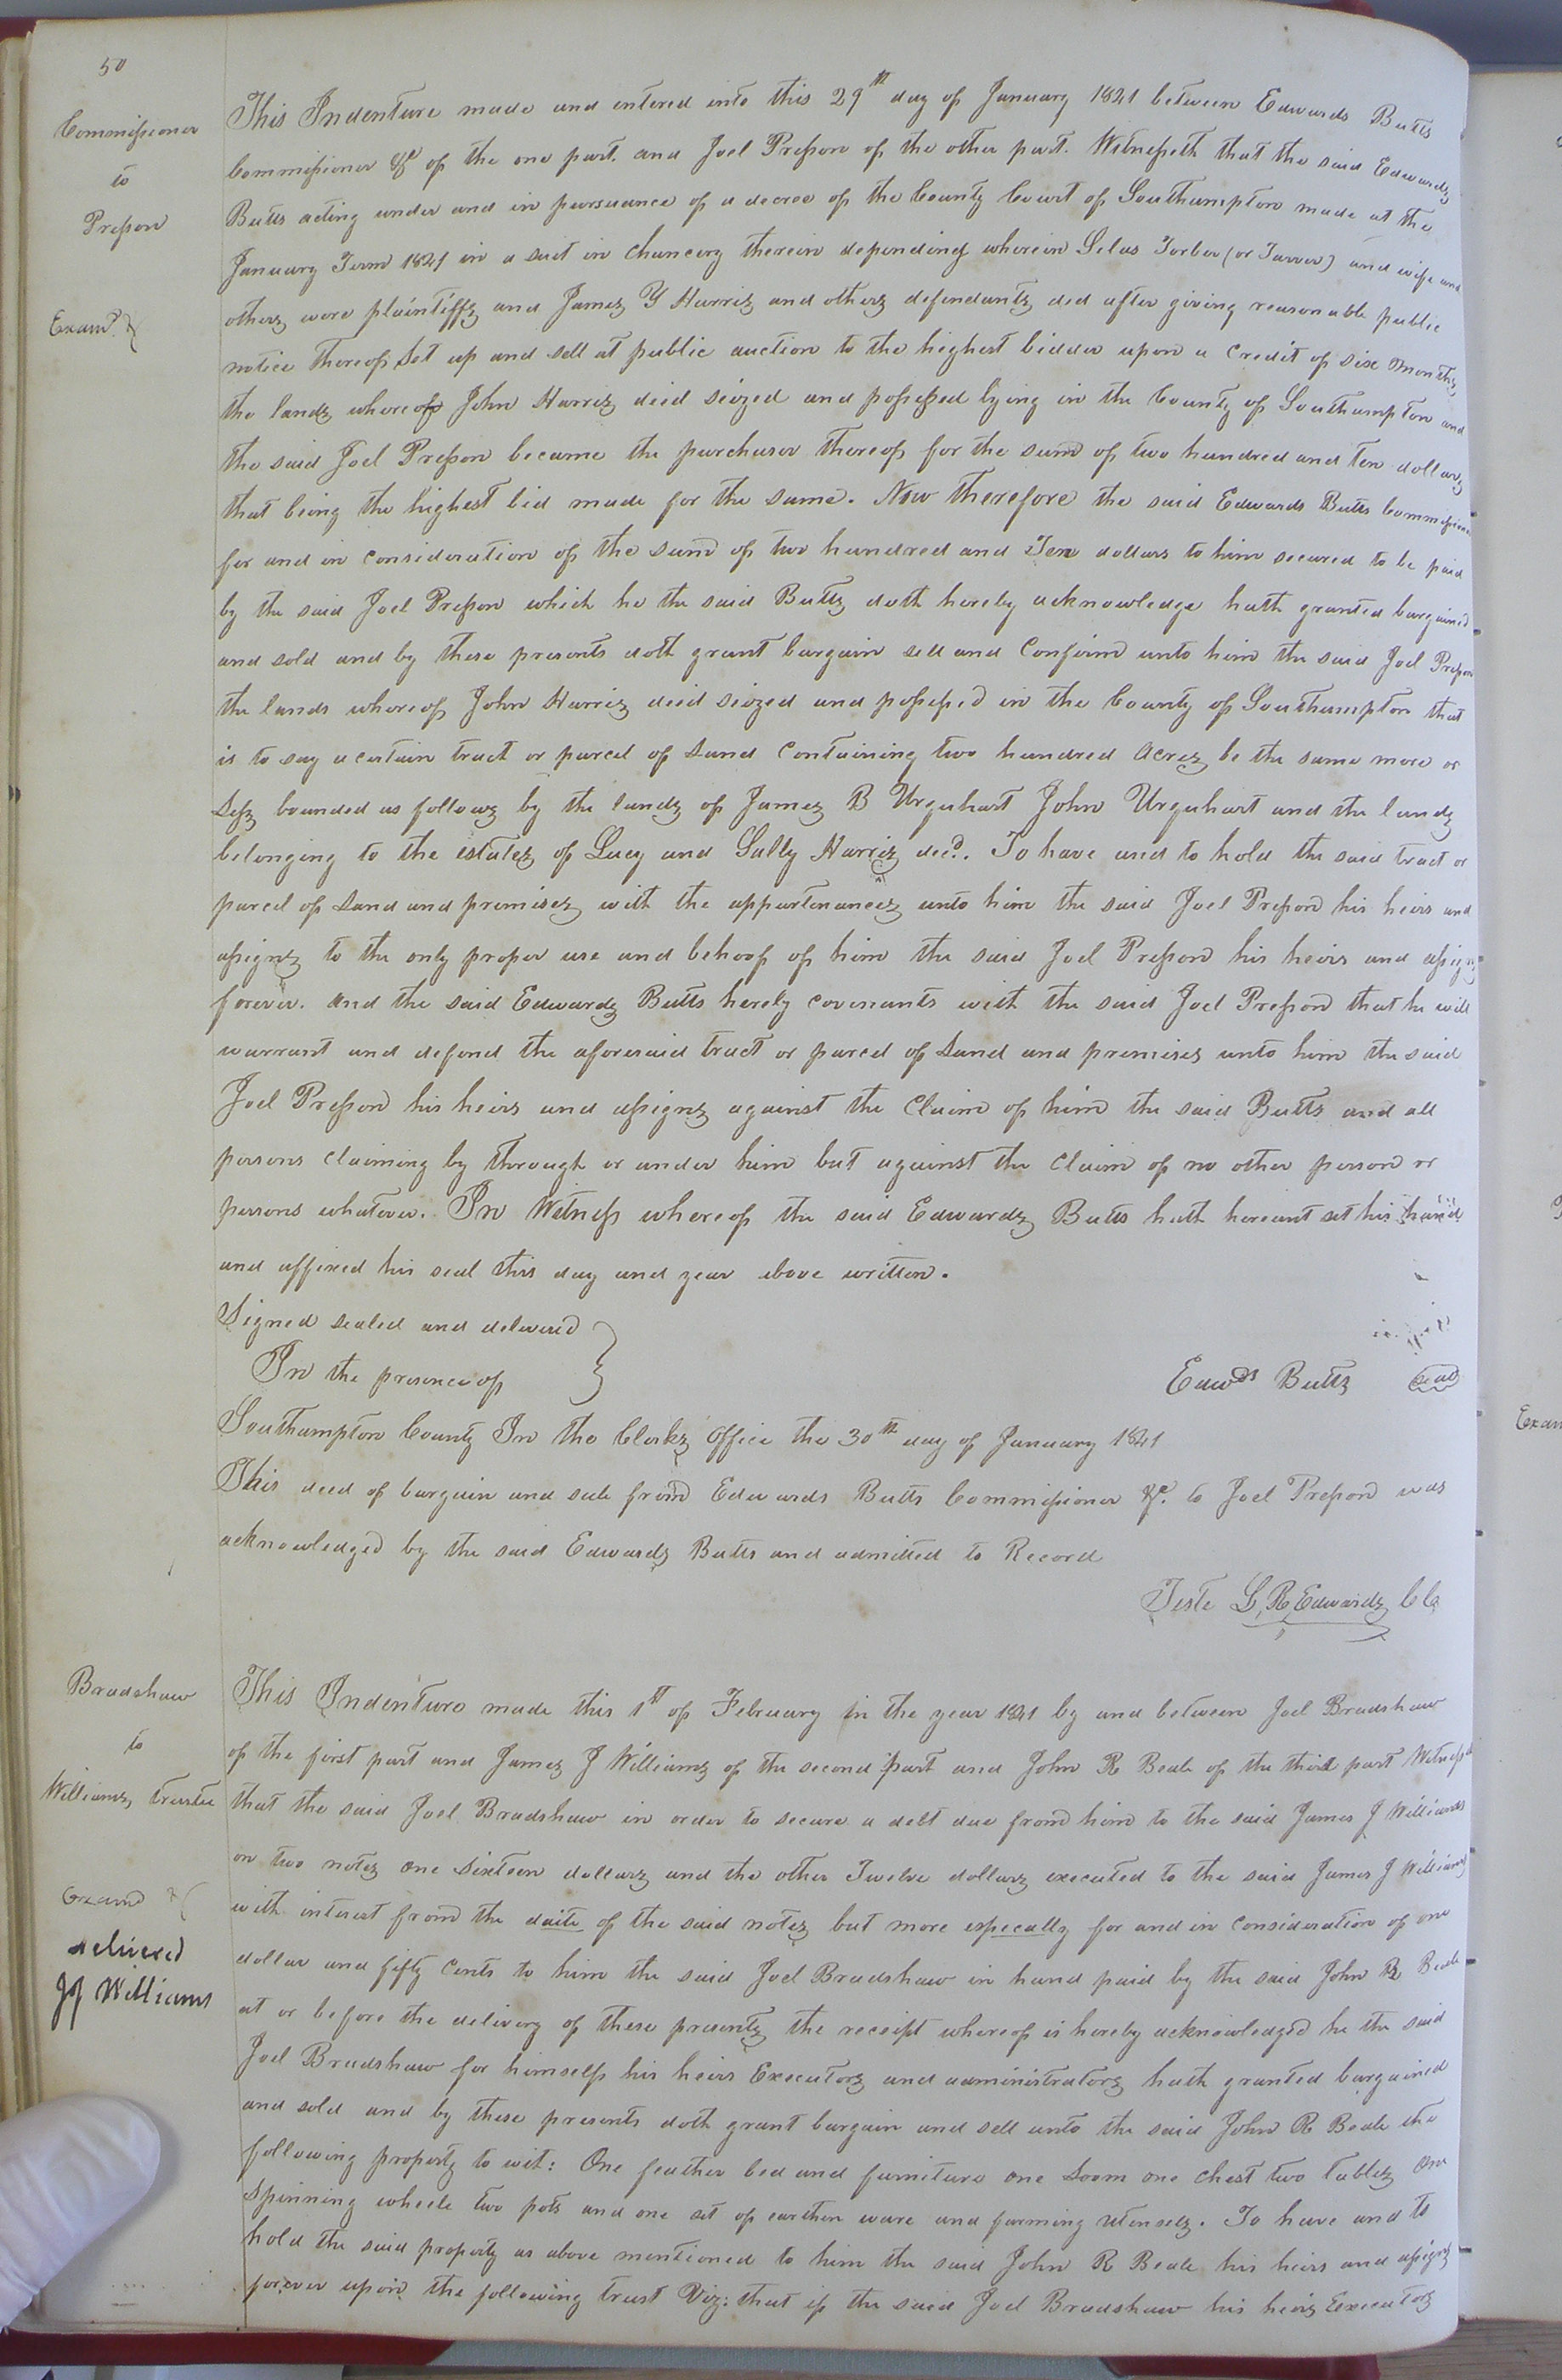 50
Commissioner
to
Presson
Examd. &
This Indenture made and entered into this 29th day of January 1841 between Edwards Butts
Commissioner &c of the one part and Joel Presson of the other part. Witnesseth that the said Edwards
Butts acting under and in pursuance of a decree of the County Court of Southampton made at the
January Term 1841 in a suit in chancery therein depending wherein Silas Torber (or Tarver) and wife and
others were plaintiffs and James Y Harris and others defendants, did after giving reasonable public
notice thereof set up and sell at public auction to the highest bidder upon a Credit of six months
the lands whereof John Harris died seized and possessed lying in the County of Southampton and
the said Joel Presson became the purchaser thereof for the sum of two hundred and Ten dollars
that being the highest bid made for the same. Now Therefore the said Edwards Butts Commissioner
for and in consideration of the sum of two hundred and Ten dollars to him secured to be paid
by the said Joel Presson which he the said Butts doth hereby acknowledge hath granted bargained
and sold and by these presents doth grant bargain sell and Confirm unto him the said Joel Presson
the lands whereof John Harris died seized and possess'd in the County of Southampton that
is to say a certain tract or parcel of Land Containing two hundred Acres be the same more or
Less bounded as follows by the lands of James B Urquhart John Urquhart and the lands
belonging to the estates of Lucy and Sally Harris decd. To have and to hold the said tract or
parcel of Land and premises with the appurtenances unto him the said Joel Presson his heirs and
assigns to the only proper use and behoof of him the said Joel Presson his heirs and assigns
forever. And the said Edwards Butts hereby covenants with the said Joel Presson that he will
warrant and defend the aforesaid tract or parcel of Land and premises unto him the said
Joel Presson his heirs and assigns against the Claim of him the said Butts and all
persons claiming by through or under him but against the Claim of no other person or
persons whatever. In Witness whereof the said Edwards Butts hath hereunt set his hand
and affixed his seal this day and year above written.
Signed sealed and delivered
In the presence of
Edwds Butts Seal
Southampton County In the Clerks Office the 30th day of January 1841
This deed of bargain and sale from Edwards Butts Commissioner &c. to Joel Presson was
acknowledged by the said Edwards Butts and admitted to Record
Teste L, R, Edwards CC
Bradshaw
to
Williams, trustee
Examd &
delivered
JJ Williams
This Indenture made this 1st of February in the year 1841 by and between Joel Bradshaw
of the first part and James J Williams of the second part and John R Beale of the third part Witnesseth
that the said Joel Bradshaw in order to secure a debt due from him to the said James J Williams
on two notes one Sixteen dollars and the other Twelve dollars executed to the said James J Williams
with interest from the daite of the said notes but more especally for and in consideration of one
dollar and fifty Cents to him the said Joel Bradshaw in hand paid by the said John R Beale
at or before the delivery of these presents the receipt whereof is hereby acknowledged he the said
Joel Bradshaw for himself his heirs Executors and administrators hath granted bargained
and sold and by these presents doth grant bargain and sell unto the said John R Beale the
following property to wit: One feather bed and furniture one Loom one chest two tables one
Spinning wheele two pots and one set of earthen ware and farming utensels. To have and to
hold the said property as above mentioned to him the said John R Beale his heirs and assigns
forever upon the following trust Viz: that if the said Joel Bradshaw his heirs Executors
Exam